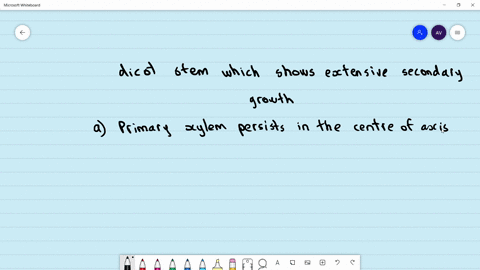 Microsoft Whiteboard
AV
dicot stem which shows extensive secondary
growth
a) Primary xylem persists in the centre of axis